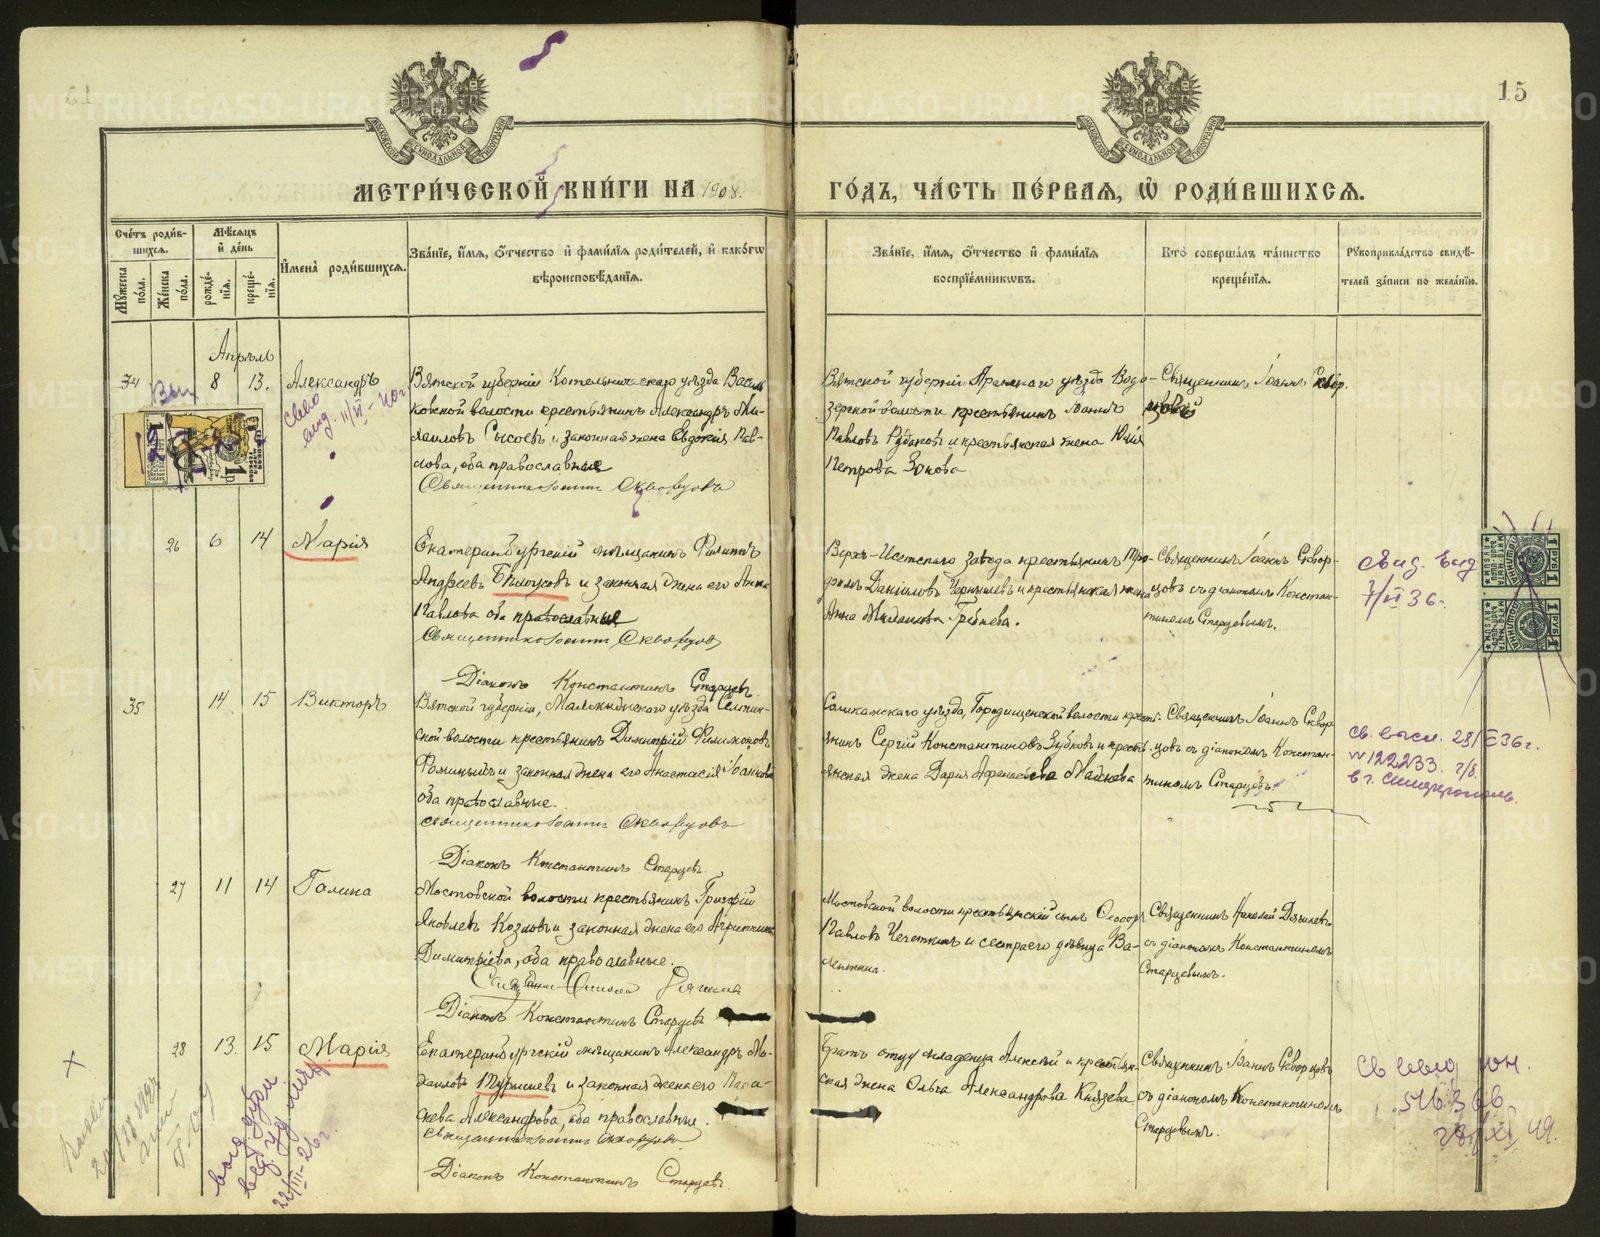 15
МЕТРИ́ЧЕСКОЙ КНИ́ГИ НА 1908.
ГО́ДЪ, ЧА́СТЬ ПЕ́РВАѦ, Ѡ҆ РОДИ́ВШИХСѦ.
Сче́тъ роди́вшихсѧ.
Мꙋ́жеска по́ла.
Же́нска по́ла.
Мѣ́сѧцъ и҆ де́нь
рожде́нїѧ.
креще́нїѧ.
И҆мена̀ роди́вшихсѧ.
Зва́нїе, и҆́мѧ, ѻ҆́тчество и҆ фами́лїѧ роди́телей, и҆ како́гѡ
вѣроисповѣ́данїѧ.
Зва́нїе, и҆́мѧ, ѻ҆́тчество и҆ фами́лїѧ
воспрїе́мникѡвъ.
Кто̀ соверша́лъ та́инство
креще́нїѧ.
Рꙋкоприкла́дство свидѣ́-
телей за́писи по жела́нїю.
Апрѣль
34 8 13. Александръ
Вятской губерніи Котельническаго уѣзда Васил
ковской волости крестьянинъ Александръ Ми-
хаиловъ Сысоевъ и законная жена Евдокія Пав-
лова, оба православные
Священникъ Іоаннъ Скворцовъ
Вятской губерніи Яранскаго уѣзда Водо-
зерской волости крестьянинъ Іоаннъ
Павловъ Рубаковъ и крестьянская жена Юлія
Петрова Зонова
Священникъ Іоаннъ Сквор.
цовъ
26 6 14 Марія
Екатеринбургскій мѣщанинъ Филиппъ
Андреевъ Бѣлоусовъ и законная жена его Анна
Павлова оба православные
Священникъ Іоаннъ Скворцовъ
Діаконъ Константинъ Старцевъ.
Верхъ-Исетскаго завода крестьянинъ Тро-
фимъ Даніиловъ Чернышевъ и крестьянская жена
Анна Михаилова Гребнева.
Священникъ Іоаннъ Сквор-
цовъ съ діакономъ Констан-
тиномъ Старцевымъ.
35 14 15 Викторъ
Вятской губерніи, Малмыжскаго уѣзда
ской волости крестьянинъ Димитрій Филимоновъ
Фоминыхъ и законная жена его Анастасія Іоаннова
оба православные.
Священникъ Іоаннъ Скворцовъ
Діаконъ Константинъ Старцевъ.
Соликамскаго уѣзда, Городищенской волости кресть-
янинъ Сергій Константиновъ Зубковъ и кресть-
янская жена Дарія Афанасіева
Священникъ Іоаннъ Сквор-
цовъ съ діакономъ Констан-
тиномъ Старцевъ.
27 11 14 Галина
Мостовской волости крестьянинъ Григорій
Яковлевъ Козловъ и законная жена его Агриппина
Димитріева, оба православные.
Діаконъ Константинъ Старцевъ
Мостовской волости крестьянскій сынъ Ѳеодоръ
Павловъ Чечеткинъ и сестра его дѣвица Ва-
лентина.
Священникъ Николай Дягилевъ
съ діакономъ Константиномъ
Старцевымъ.
28 13. 15 Марія
Екатеринбургскій мѣщанинъ Александръ Ми-
хаиловъ и законная жена его Пара-
скева Александрова, оба православные.
Священникъ Іоаннъ Скворцовъ
Діаконъ Константинъ Старцевъ.
Братъ отцу младенца Алексѣй и крестьян-
ская жена Ольга Александрова Князева
Священникъ Іоаннъ Скворцовъ
съ діакономъ Константиномъ
Старцевымъ.
7/VI 36г.
св. высл. 28/ 36г.
№ 122233.
в г. Симферополь.
516366
28/XI 49.
22/III-26г.
1 РУБ 1
1 РУБ 1
METRIKI.GASO-URAL.RU